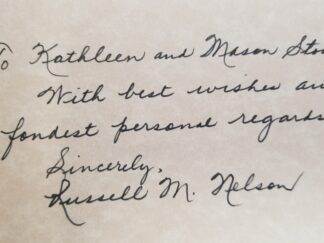 To Kathleen and Mason
With best wishes
fondest personal regards
Sincerely,
Russell M. Nelson